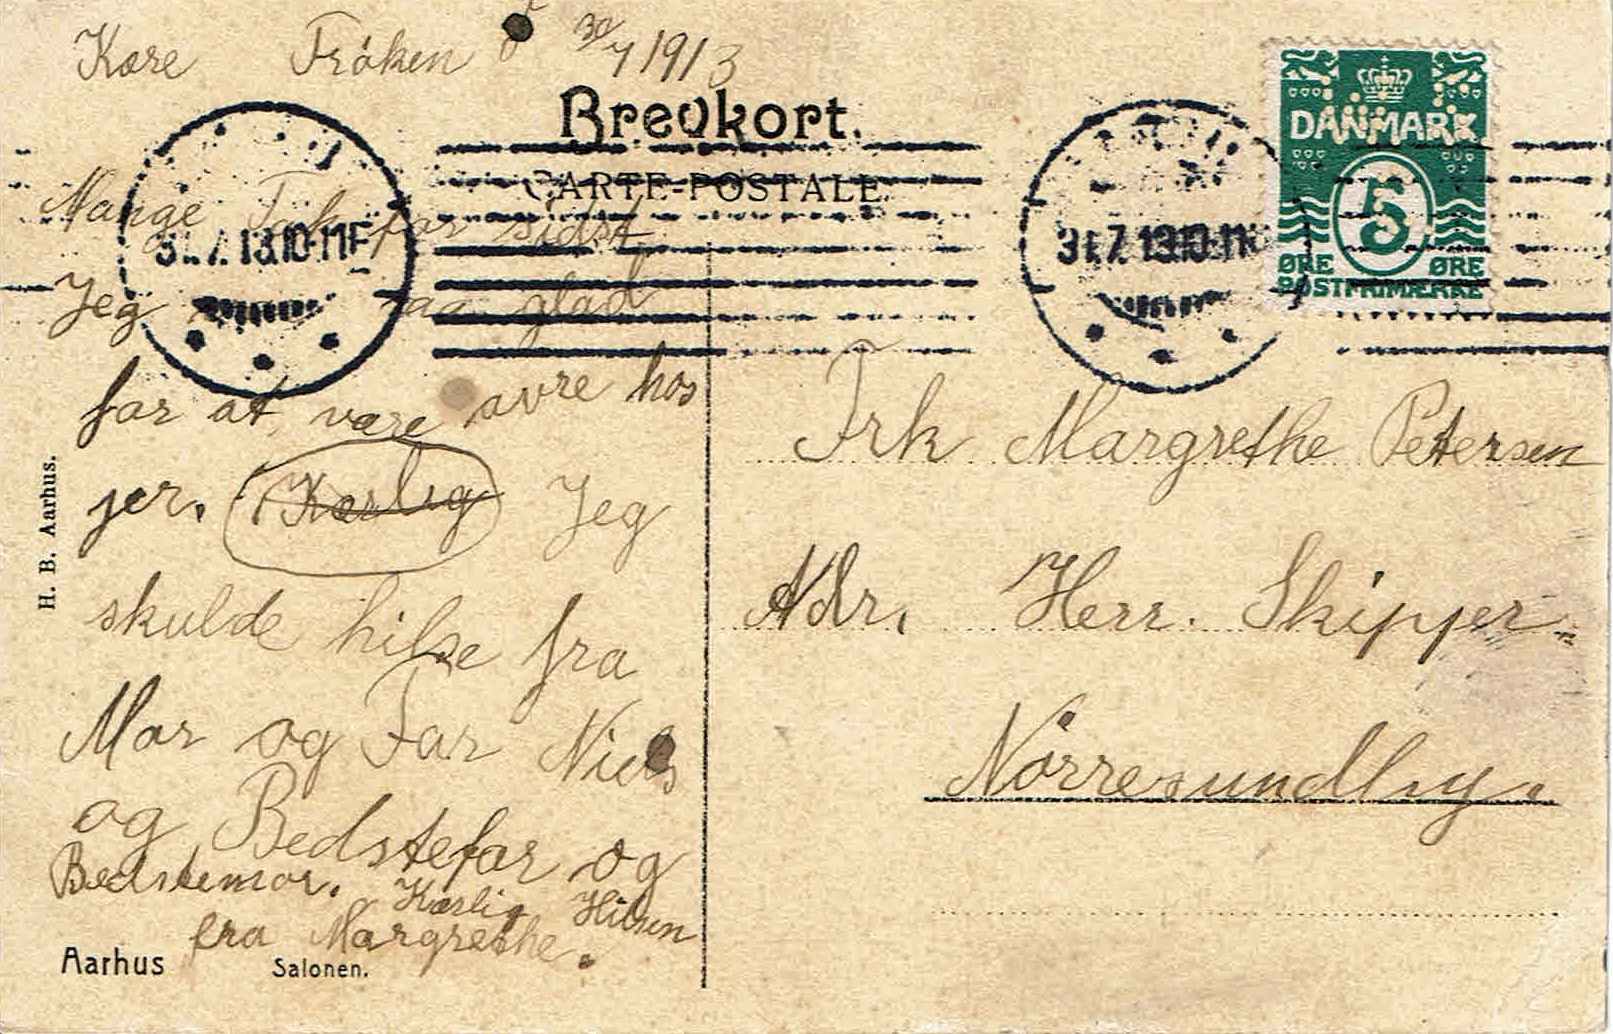 Kære Frøken 30/7 1913
Brevkort.
CARTE-POSTALE
Mange Tak for sidst
Jeg saa glad
for at være hos
jer. Kærlig Jeg
skulde hilse fra
Mor og Far Niels
og Bedstefar og
Bedstemor. Kærlig Hilsen
fra Margrethe.
Aarhus Salonen.
H. B. Aarhus.
31.7.13.10-11F
31.7.13.10-11F
DANMARK
5
ØRE ØRE
POSTFRIMÆRKE
Frk Margrethe Petersen
Adr. Herr. Skipper
Nørresundby.